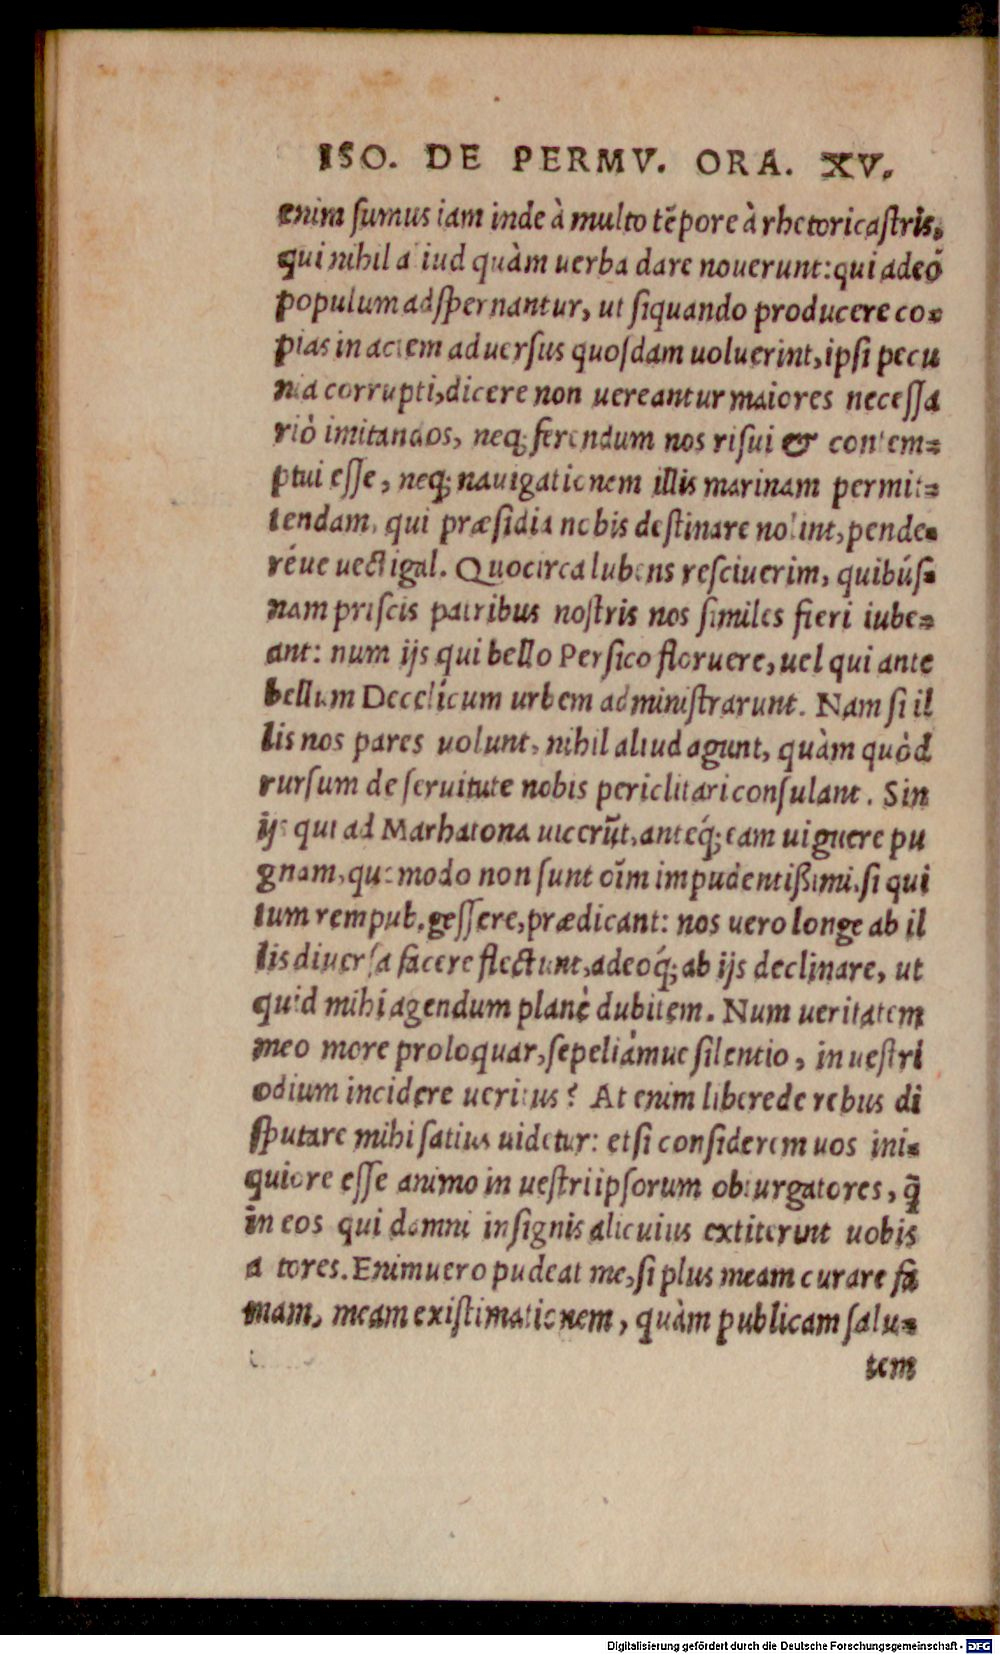 ISO. DE PERMV. ORA. XV.
enim sumus iam inde à multo tẽpore à rhetoricastris,
qui nihil aliud quàm uerba dare nouerunt: qui adeò
populum adspernantur, ut siquando producere co-
pias in aciem aduersus quosdam uoluerint, ipsi pecu
nia corrupti, dicere non uereantur maiores necessa
riò imitandos, neq; ferendum nos risui & contem-
ptui esse, neq; nauigationem illis marinam permit-
tendam, qui præsidia nobis destinare nolint, pende-
réue uectigal. Quocirca lubens resciuerim, quibús-
nam priscis patribus nostris nos similes fieri iube-
ant: num ijs qui bello Persico floruere, uel qui ante
bellum Decelicum urbem administrarunt. Nam si il
lis nos pares uolunt, nihil aliud agunt, quàm quòd
rursum de seruitute nobis periclitari consulant. Sin
ijs qui ad Marhatona uicerũt, anteq́; eam uiguere pu
gnam, quomodo non sunt oĩm impudentißimi, si qui
tum rempub. gessere, prædicant: nos uero longe ab il
lis diuersa facere flectunt, adeoq́; ab ijs declinare, ut
quid mihi agendum planè dubitem. Num ueritatem
meo more proloquar, sepeliámue silentio, in uestri
odium incidere ueritus? At enim libere de rebus di
sputare mihi satius uidetur: etsi considerem uos ini-
quiore esse animo in uestri ipsorum obiurgatores, q̃
in eos qui damni insignis alicuius extiterint uobis
a tores. Enimuero pudeat me, si plus meam curare fa
mam, meam existimationem, quàm publicam salu-
tem
Digitalisierung gefördert durch die Deutsche Forschungsgemeinschaft - DFG